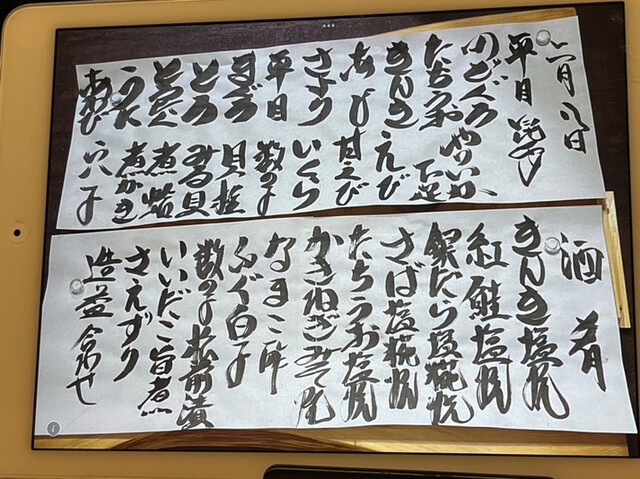 月八日
平目 昆布〆
のどぐろ やりいか
たちうお 下足
きんき えび
あじ 甘えび
さより いくら
平目 数の子
まぐろ 貝柱
とろ みる貝
煮蛤
うに 煮かき
あわび 穴子
酒肴
きんき塩焼
紅鮭塩焼
銀だら塩糀焼
さば塩糀焼
たちうお塩焼
かきねぎみそ焼
なまこ酢
ふぐ白子
数の子松前漬
いいだこ旨煮
さえずり
造盛合わせ